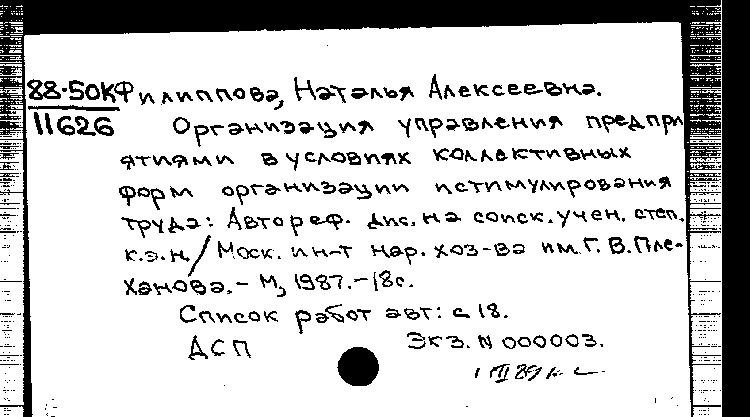 88-50к Филиппова, Наталья Алексеевна.
11626 Организация управления предпри
ятиями в условиях коллективных
форм организации и стимулирования
труда: Автореф. дис. на соиск. учен. степ.
к.э.н./Моск. ин-т нар. хоз-ва им. Г. В. Пле-
ханова. - М, 1987. - 18с.
Список работ авт: с 18.
ДСП Экз. N 000003.